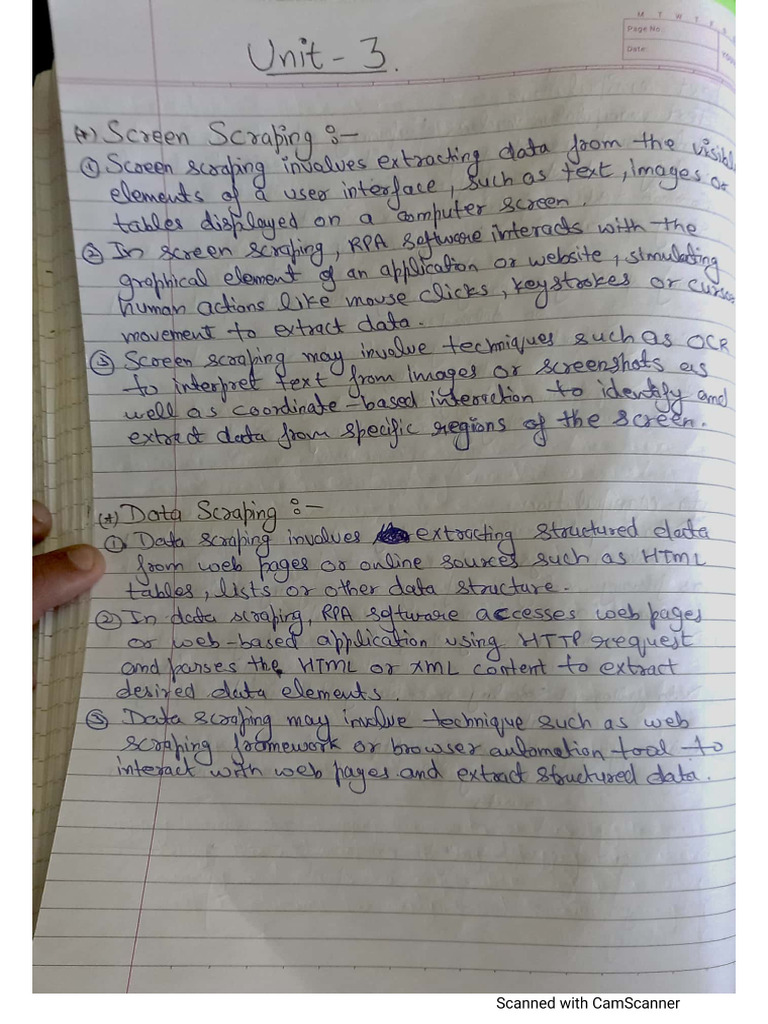 M T W T F S S
Page No.:
Date:
Unit - 3.
(*) Screen Scraping :-
① Screen scraping involves extracting data from the visible
elements of a user interface, such as text, images or
tables displayed on a computer screen.
② In screen scraping, RPA software interacts with the
graphical element of an application or website, simulating
human actions like mouse clicks, keystrokes or cursor
movement to extract data.
③ Screen scraping may involve techniques such as OCR
to interpret text from images or screenshots as
well as coordinate-based interaction to identify and
extract data from specific regions of the screen.
(*) Data Scraping :-
① Data scraping involves extracting structured data
from web pages or online sources such as HTML
tables, lists or other data structure.
② In data scraping, RPA software accesses web pages
or web-based application using HTTP request
and parses the HTML or XML content to extract
desired data elements.
③ Data scraping may involve technique such as web
scraping framework or browser automation tool to
interact with web pages and extract structured data.
Scanned with CamScanner